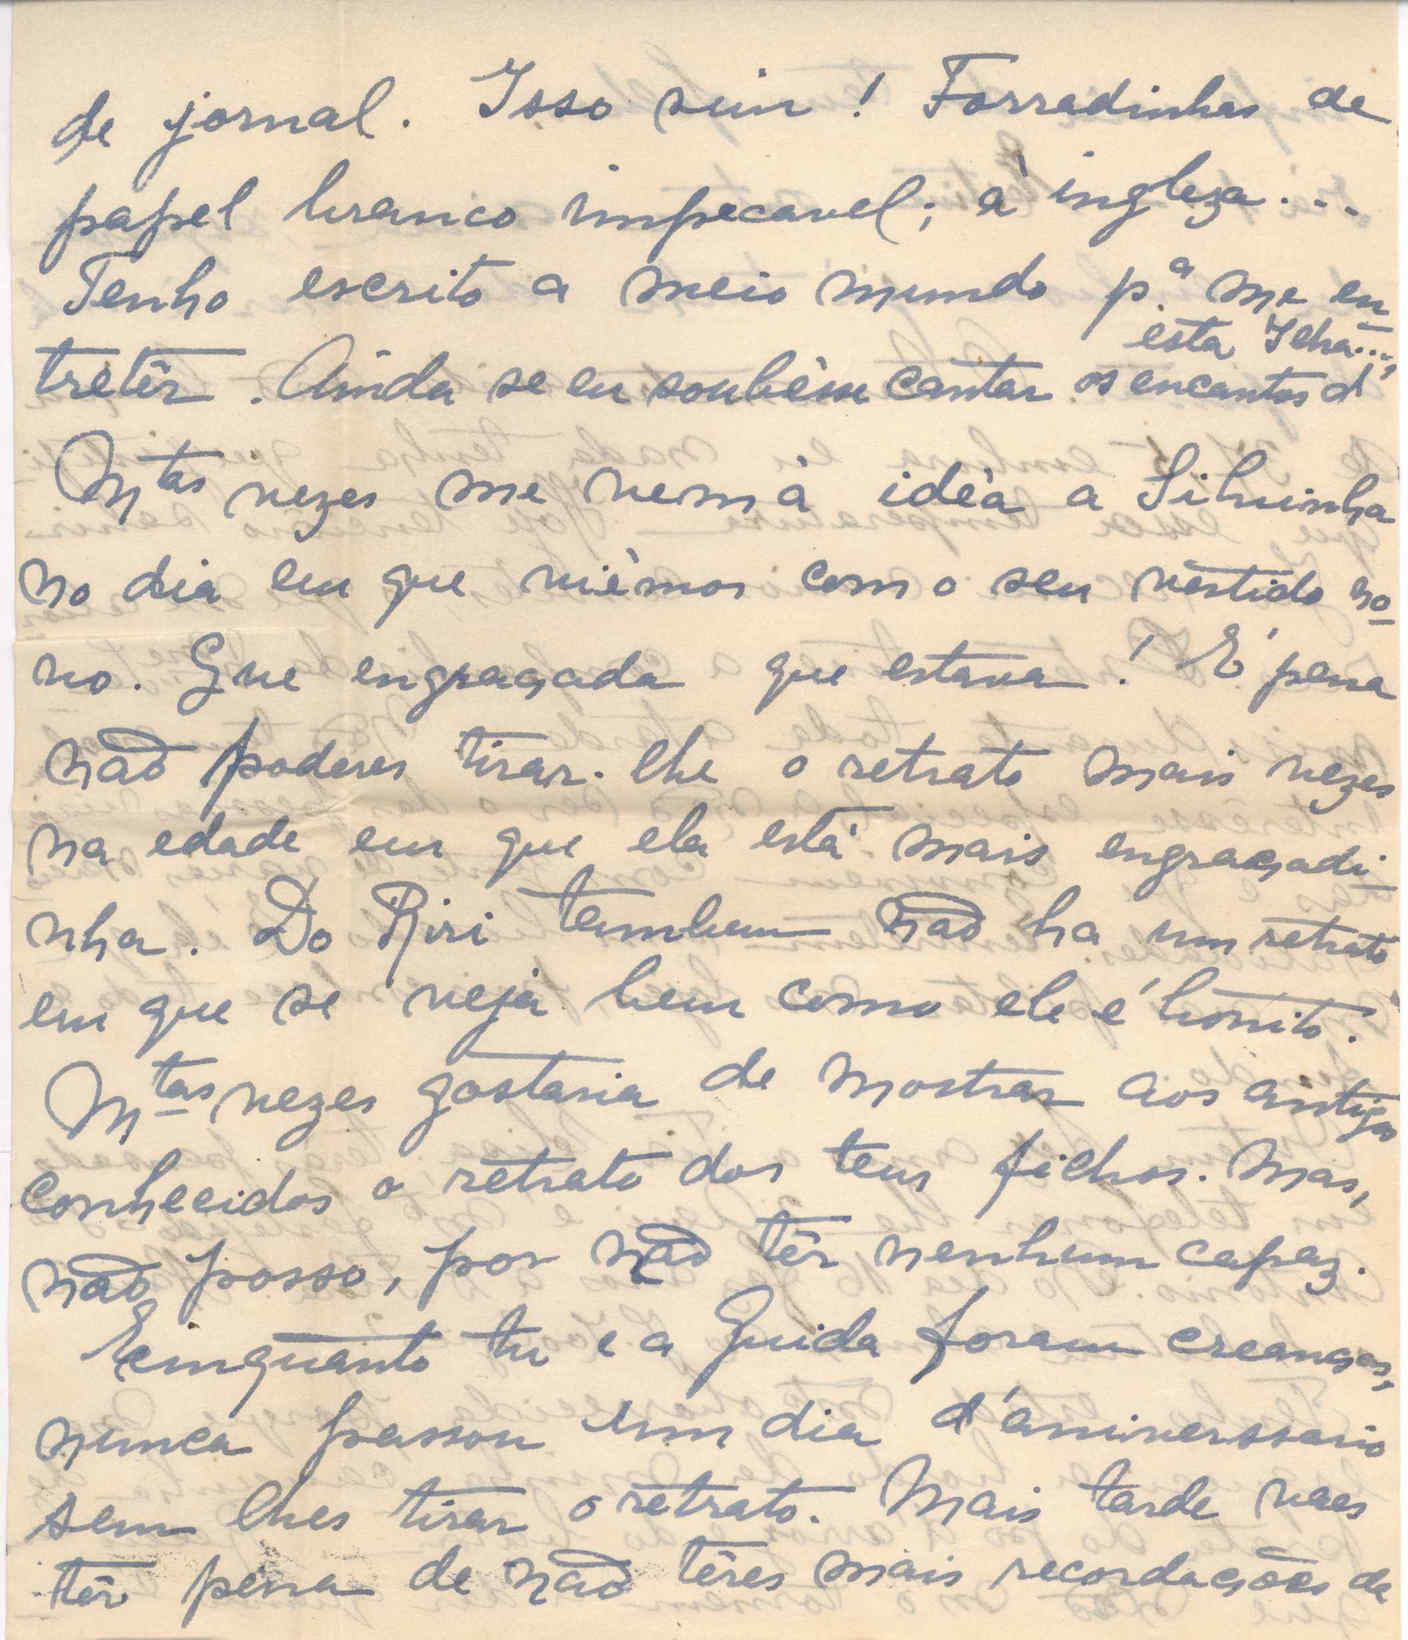 de jornal. Isso sim! Forradinhas de
papel branco impecavel; à ingleza...
Tenho escrito a meio mundo p.ª me en
tretêr. Ainda se eu soubésse cantar os encantos d'
esta Ilha...,
Mtas vezes me vem à idéa a Silvinha
no dia em que viémos com o seu vestido no
vo. Que engraçada que estava! É pena
não poderes tirar-lhe o retrato mais vezes
na edade em que ela está mais engraçadi
nha. Do Riri tambem não ha um retrato
em que se veja bem como ele é bonito.
Mtas vezes gostaria de mostrar aos antigos
conhecidos o retrato dos teus filhos. Mas,
não posso, por não têr nenhum capaz.
Emquanto tu e a Guida foram creanças,
nunca passou um dia d'aniverssario
sem lhes tirar o retrato. Mais tarde vaes
têr pena de não têres mais recordações de